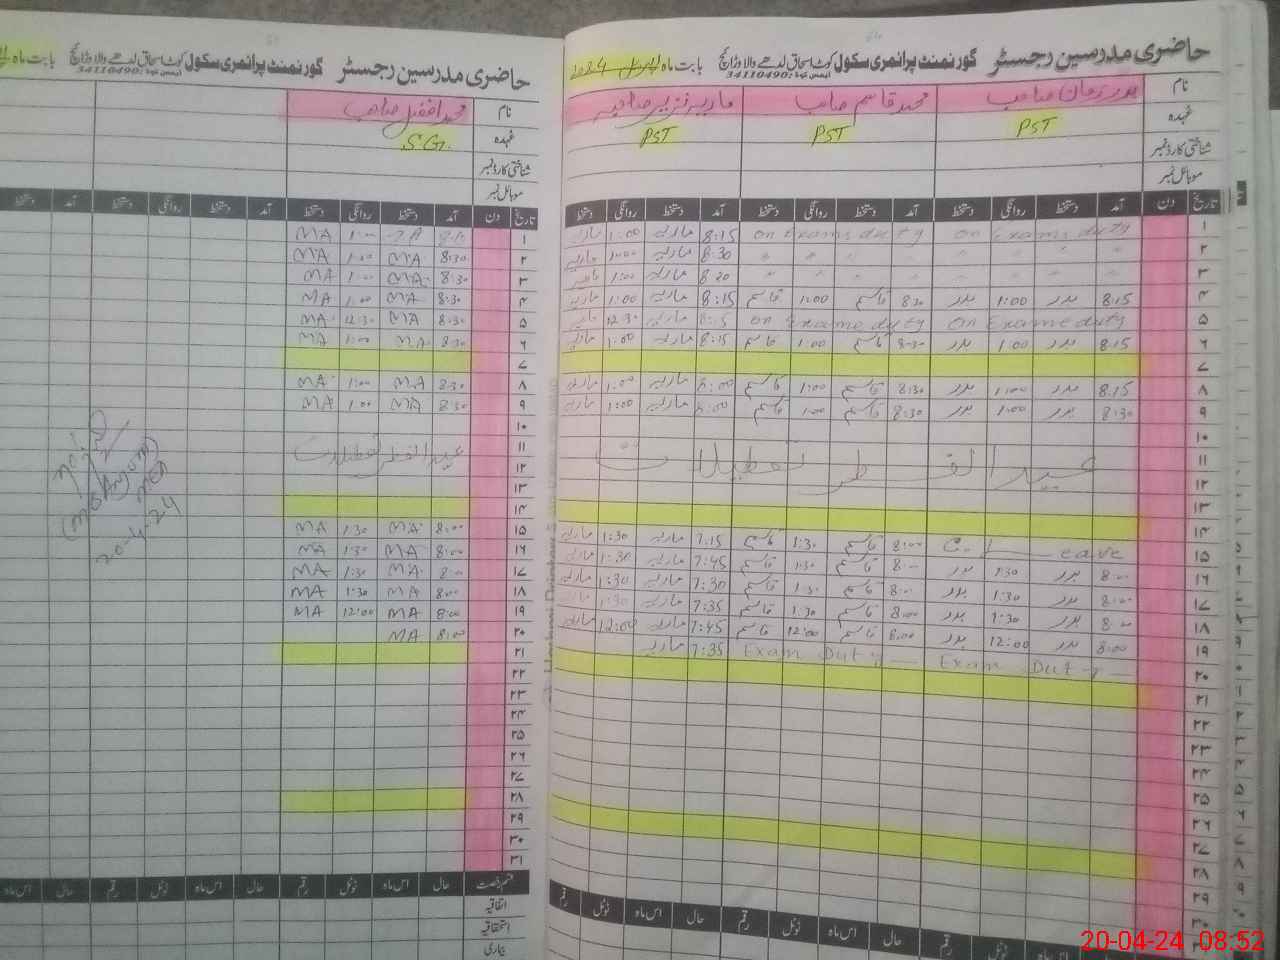 حاضری مدرسین رجسٹر گورنمنٹ پرائمری سکول کوٹ اسحاق لدھے والا وڑائچ بابت ماہ اپریل 2024
ایمس کوڈ: 34110490
نام محمد قاسم صاحب
عہدہ PST PST PST
شناختی کارڈ نمبر
موبائل نمبر
تاریخ دن آمد دستخط روانگی دستخط آمد دستخط روانگی دستخط آمد دستخط روانگی دستخط
۱ on Exams duty on Exams duty 8:15 ماریہ 1:00 ماریہ
۲ " " " " " " 8:30 ماریہ 1:00 ماریہ
۳ " " " " " " 8:20 ماریہ 1:00
۴ 8:15 بدر 1:00 بدر 8:30 قاسم 1:00 قاسم 8:15 ماریہ 1:00 ماریہ
۵ on Exams duty on Exams duty 8:15 ماریہ 12:30
۶ 8:15 بدر 1:00 بدر 8:30 قاسم 1:00 قاسم 8:15 ماریہ 1:00 ماریہ
۷
۸ 8:15 بدر 1:00 بدر 8:30 قاسم 1:00 قاسم 8:00 ماریہ 1:00 ماریہ
۹ 8:30 بدر 1:00 بدر 8:30 قاسم 1:00 قاسم 8:00 ماریہ 1:00 ماریہ
۱۰
۱۱ عید الفطر تعطیلات
۱۲
۱۳
۱۴
۱۵ C. Leave 8:00 قاسم 1:30 قاسم 7:15 ماریہ 1:30 ماریہ
۱۶ 8:00 بدر 1:30 بدر 8:00 قاسم 1:30 قاسم 7:45 ماریہ 1:30 ماریہ
۱۷ 8:00 بدر 1:30 بدر 8:00 قاسم 1:30 قاسم 7:30 ماریہ 1:30 ماریہ
۱۸ 8:00 بدر 1:30 بدر 8:00 قاسم 1:30 قاسم 7:35 ماریہ 1:30 ماریہ
۱۹ 8:00 بدر 12:00 بدر 8:00 قاسم 12:00 قاسم 7:45 ماریہ 12:00 ماریہ
۲۰ Exam Duty Exam Duty 7:35 ماریہ
۲۱
۲۲
۲۳
۲۴
۲۵
۲۶
۲۷
۲۸
۲۹
۳۰
حال اس ماہ ٹوٹل رقم حال اس ماہ ٹوٹل رقم
حاضری مدرسین رجسٹر گورنمنٹ پرائمری سکول کوٹ اسحاق لدھے والا وڑائچ بابت ماہ
ایمس کوڈ: 34110490
نام محمد افضل صاحب
عہدہ S.G.
شناختی کارڈ نمبر
موبائل نمبر
تاریخ دن آمد دستخط روانگی دستخط آمد دستخط روانگی دستخط آمد دستخط
۱ MA 1:00 MA
۲ 8:30 MA 1:00 MA
۳ 8:30 MA 1:00 MA
۴ 8:30 MA 1:00 MA
۵ 8:30 MA 12:30 MA
۶ 8:30 MA 1:00 MA
۷
۸ 8:30 MA 1:00 MA
۹ 8:30 MA 1:00 MA
۱۰
۱۱ عید الفطر تعطیلات
۱۲
۱۳
۱۴
۱۵ 8:00 MA 1:30 MA
۱۶ 8:00 MA 1:30 MA
۱۷ 8:00 MA 1:30 MA
۱۸ 8:00 MA 1:30 MA
۱۹ 8:00 MA 12:00 MA
۲۰ 8:00 MA
۲۱
۲۲
۲۳
۲۴
۲۵
۲۶
۲۷
۲۸
۲۹
۳۰
۳۱
قسم رخصت حال اس ماہ ٹوٹل رقم حال اس ماہ ٹوٹل رقم حال اس ماہ
اتفاقیہ
استحقاقیہ
بیماری
20-4-24
20-04-24 08:52